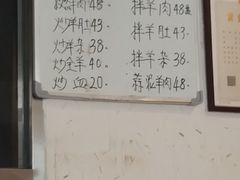 炒羊肉48. 拌羊肉48
炒羊肚43. 拌羊肚43.
炒羊杂38. 拌羊杂38.
炒全羊40. 蒜泥羊肉48.
炒血20.